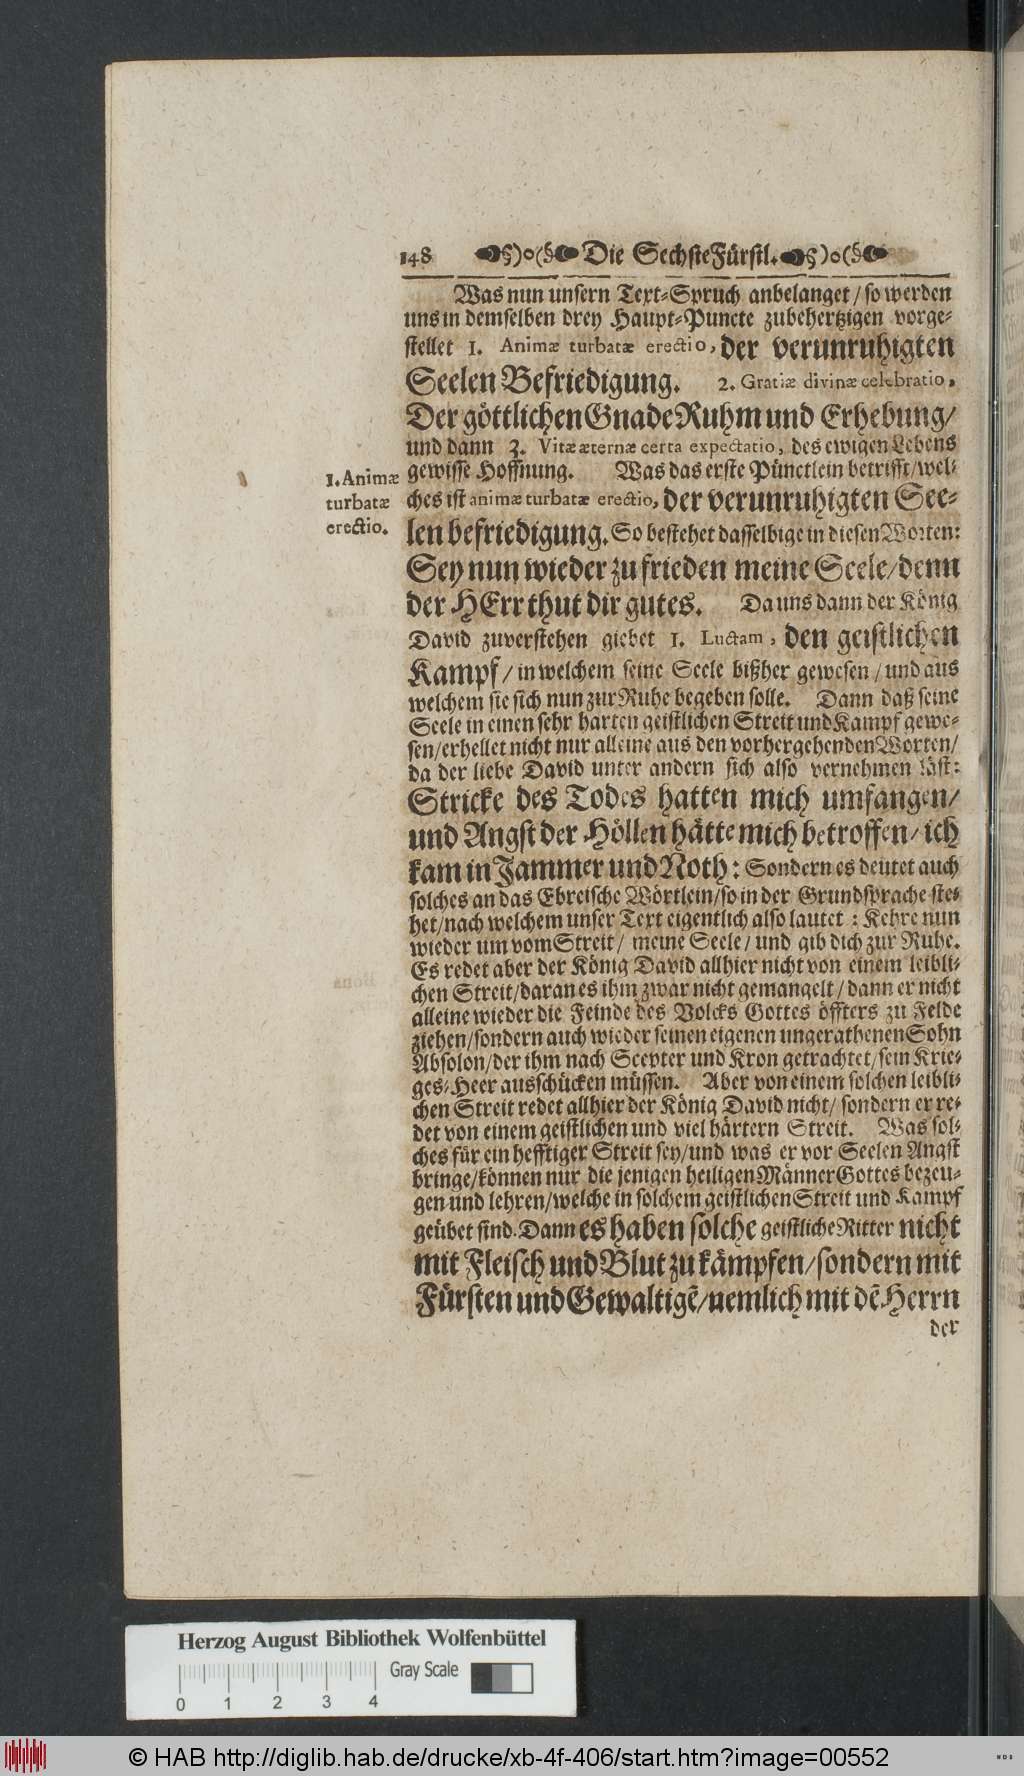 148 §)o(§ Die Sechste Fürstl. §)o(§
Was nun unsern Text-Spruch anbelanget / so werden
uns in demselben drey Haupt-Puncte zubehertzigen vorge-
stellet 1. Animæ turbatæ erectio, der verunruhigten
Seelen Befriedigung. 2. Gratiæ divinæ celebratio,
Der göttlichen Gnade Ruhm und Erhebung /
und dann 3. Vitæ æternæ certa expectatio, des ewigen Lebens
gewisse Hoffnung. Was das erste Pünctlein betrifft / wel-
1. Animæ
turbatæ
erectio.
ches ist animæ turbatæ erectio, der verunruhigten See-
len befriedigung. So bestehet dasselbige in diesen Worten:
Sey nun wieder zu frieden meine Seele / denn
der HErr thut dir gutes. Da uns dann der König
David zuverstehen giebet 1. Luctam, den geistlichen
Kampf / in welchem seine Seele bißher gewesen / und aus
welchem sie sich nun zur Ruhe begeben solle. Dann daß seine
Seele in einen sehr harten geistlichen Streit und Kampf gewe-
sen / erhellet nicht nur alleine aus den vorhergehenden Worten /
da der liebe David unter andern sich also vernehmen läst:
Stricke des Todes hatten mich umfangen /
und Angst der Höllen hätte mich betroffen / ich
kam in Jammer und Noth: Sondern es deutet auch
solches an das Ebreische Wörtlein / so in der Grundsprache ste-
het / nach welchem unser Text eigentlich also lautet: Kehre nun
wieder um vom Streit / meine Seele / und gib dich zur Ruhe.
Es redet aber der König David allhier nicht von einem leibli-
chen Streit / daran es ihm zwar nicht gemangelt / dann er nicht
alleine wieder die Feinde des Volcks Gottes öffters zu Felde
ziehen / sondern auch wieder seinen eigenen ungerathenen Sohn
Absolon / der ihm nach Scepter und Kron getrachtet / sein Krie-
ges-Heer ausschücken müssen. Aber von einem solchen leibli-
chen Streit redet allhier der König David nicht / sondern er re-
det von einem geistlichen und viel härtern Streit. Was sol-
ches für ein hefftiger Streit sey / und was er vor Seelen Angst
bringe / können nur die jenigen heiligen Männer Gottes bezeu-
gen und lehren / welche in solchem geistlichen Streit und Kampf
geübet sind. Dann es haben solche geistliche Ritter nicht
mit Fleisch und Blut zu kämpfen / sondern mit
Fürsten und Gewaltigẽ / nemlich mit dẽ Herrn
der
Herzog August Bibliothek Wolfenbüttel
Gray Scale
0 1 2 3 4
© HAB http://diglib.hab.de/drucke/xb-4f-406/start.htm?image=00552